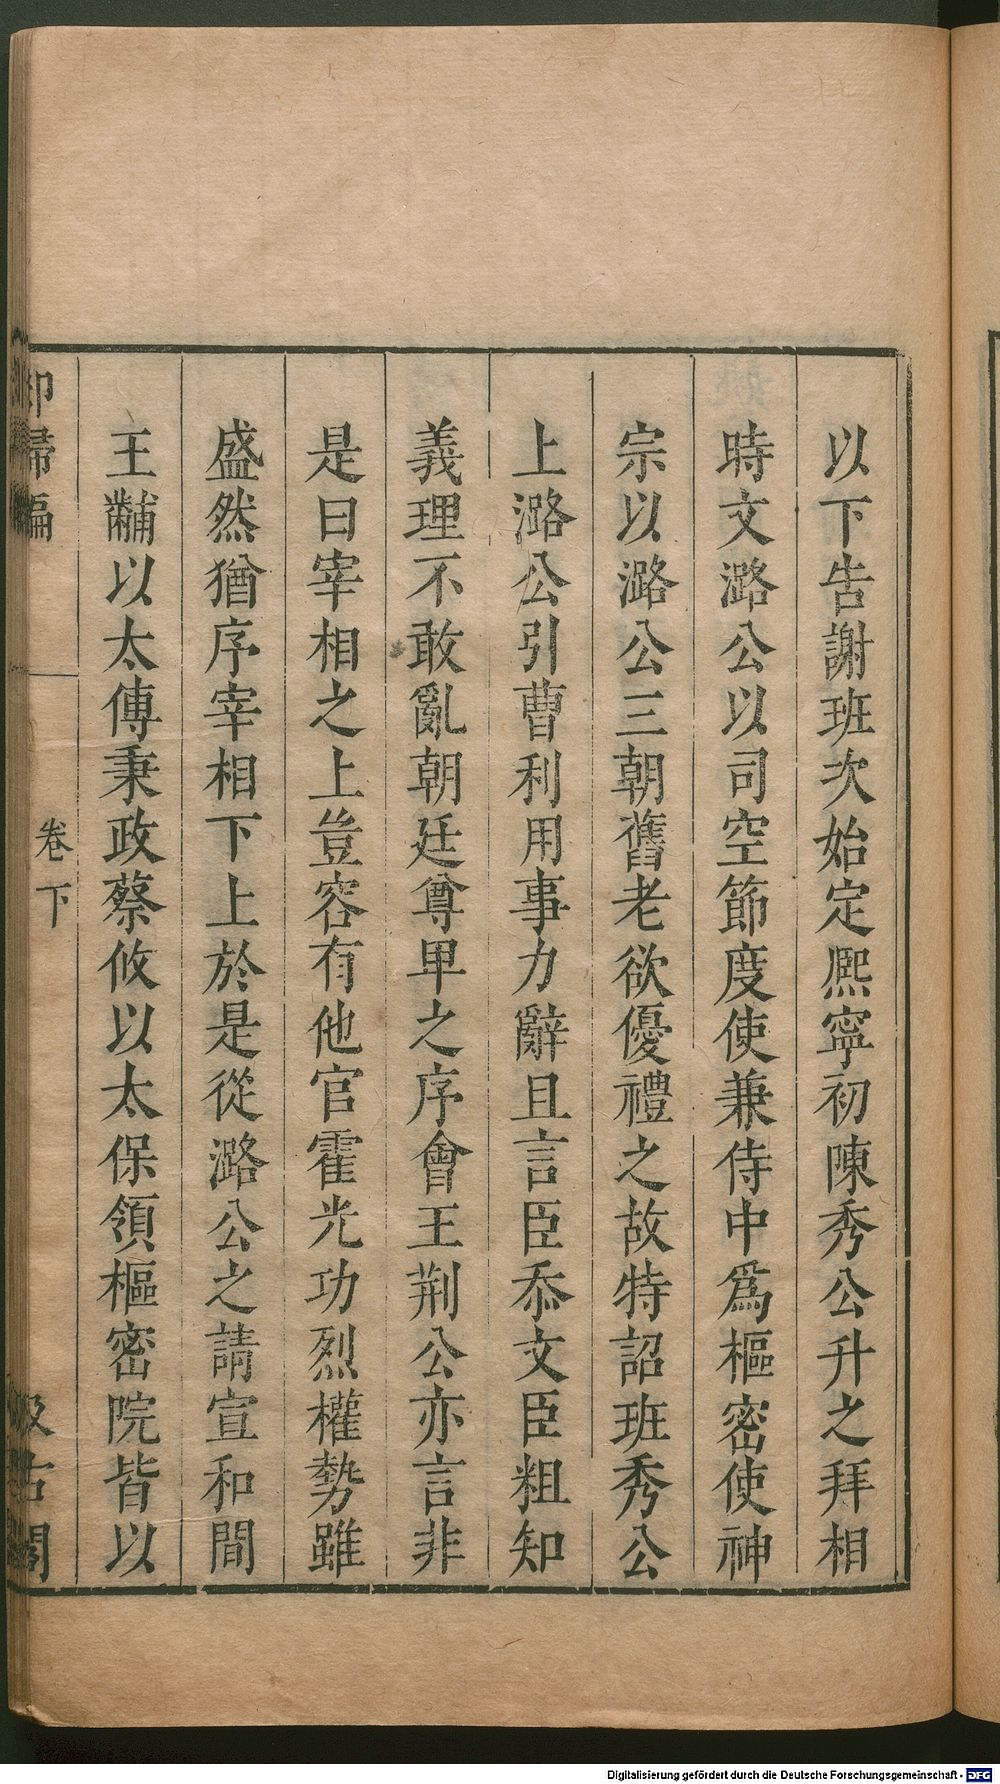 以下告謝班次始定熈寧初陳秀公升之拜相
時文潞公以司空節度使兼侍中爲樞密使神
宗以潞公三朝舊老欲優禮之故特詔班秀公
上潞公引曹利用事力辭且言臣忝文臣粗知
義理不敢亂朝廷尊卑之序會王荆公亦言非
是曰宰相之上豈容有他官霍光功烈權勢雖
盛然猶序宰相下上於是從潞公之請宣和間
王黼以太傅秉政蔡攸以太保領樞密院皆以
卻掃編 卷下 汲古閣
Digitalisierung gefördert durch die Deutsche Forschungsgemeinschaft - DFG